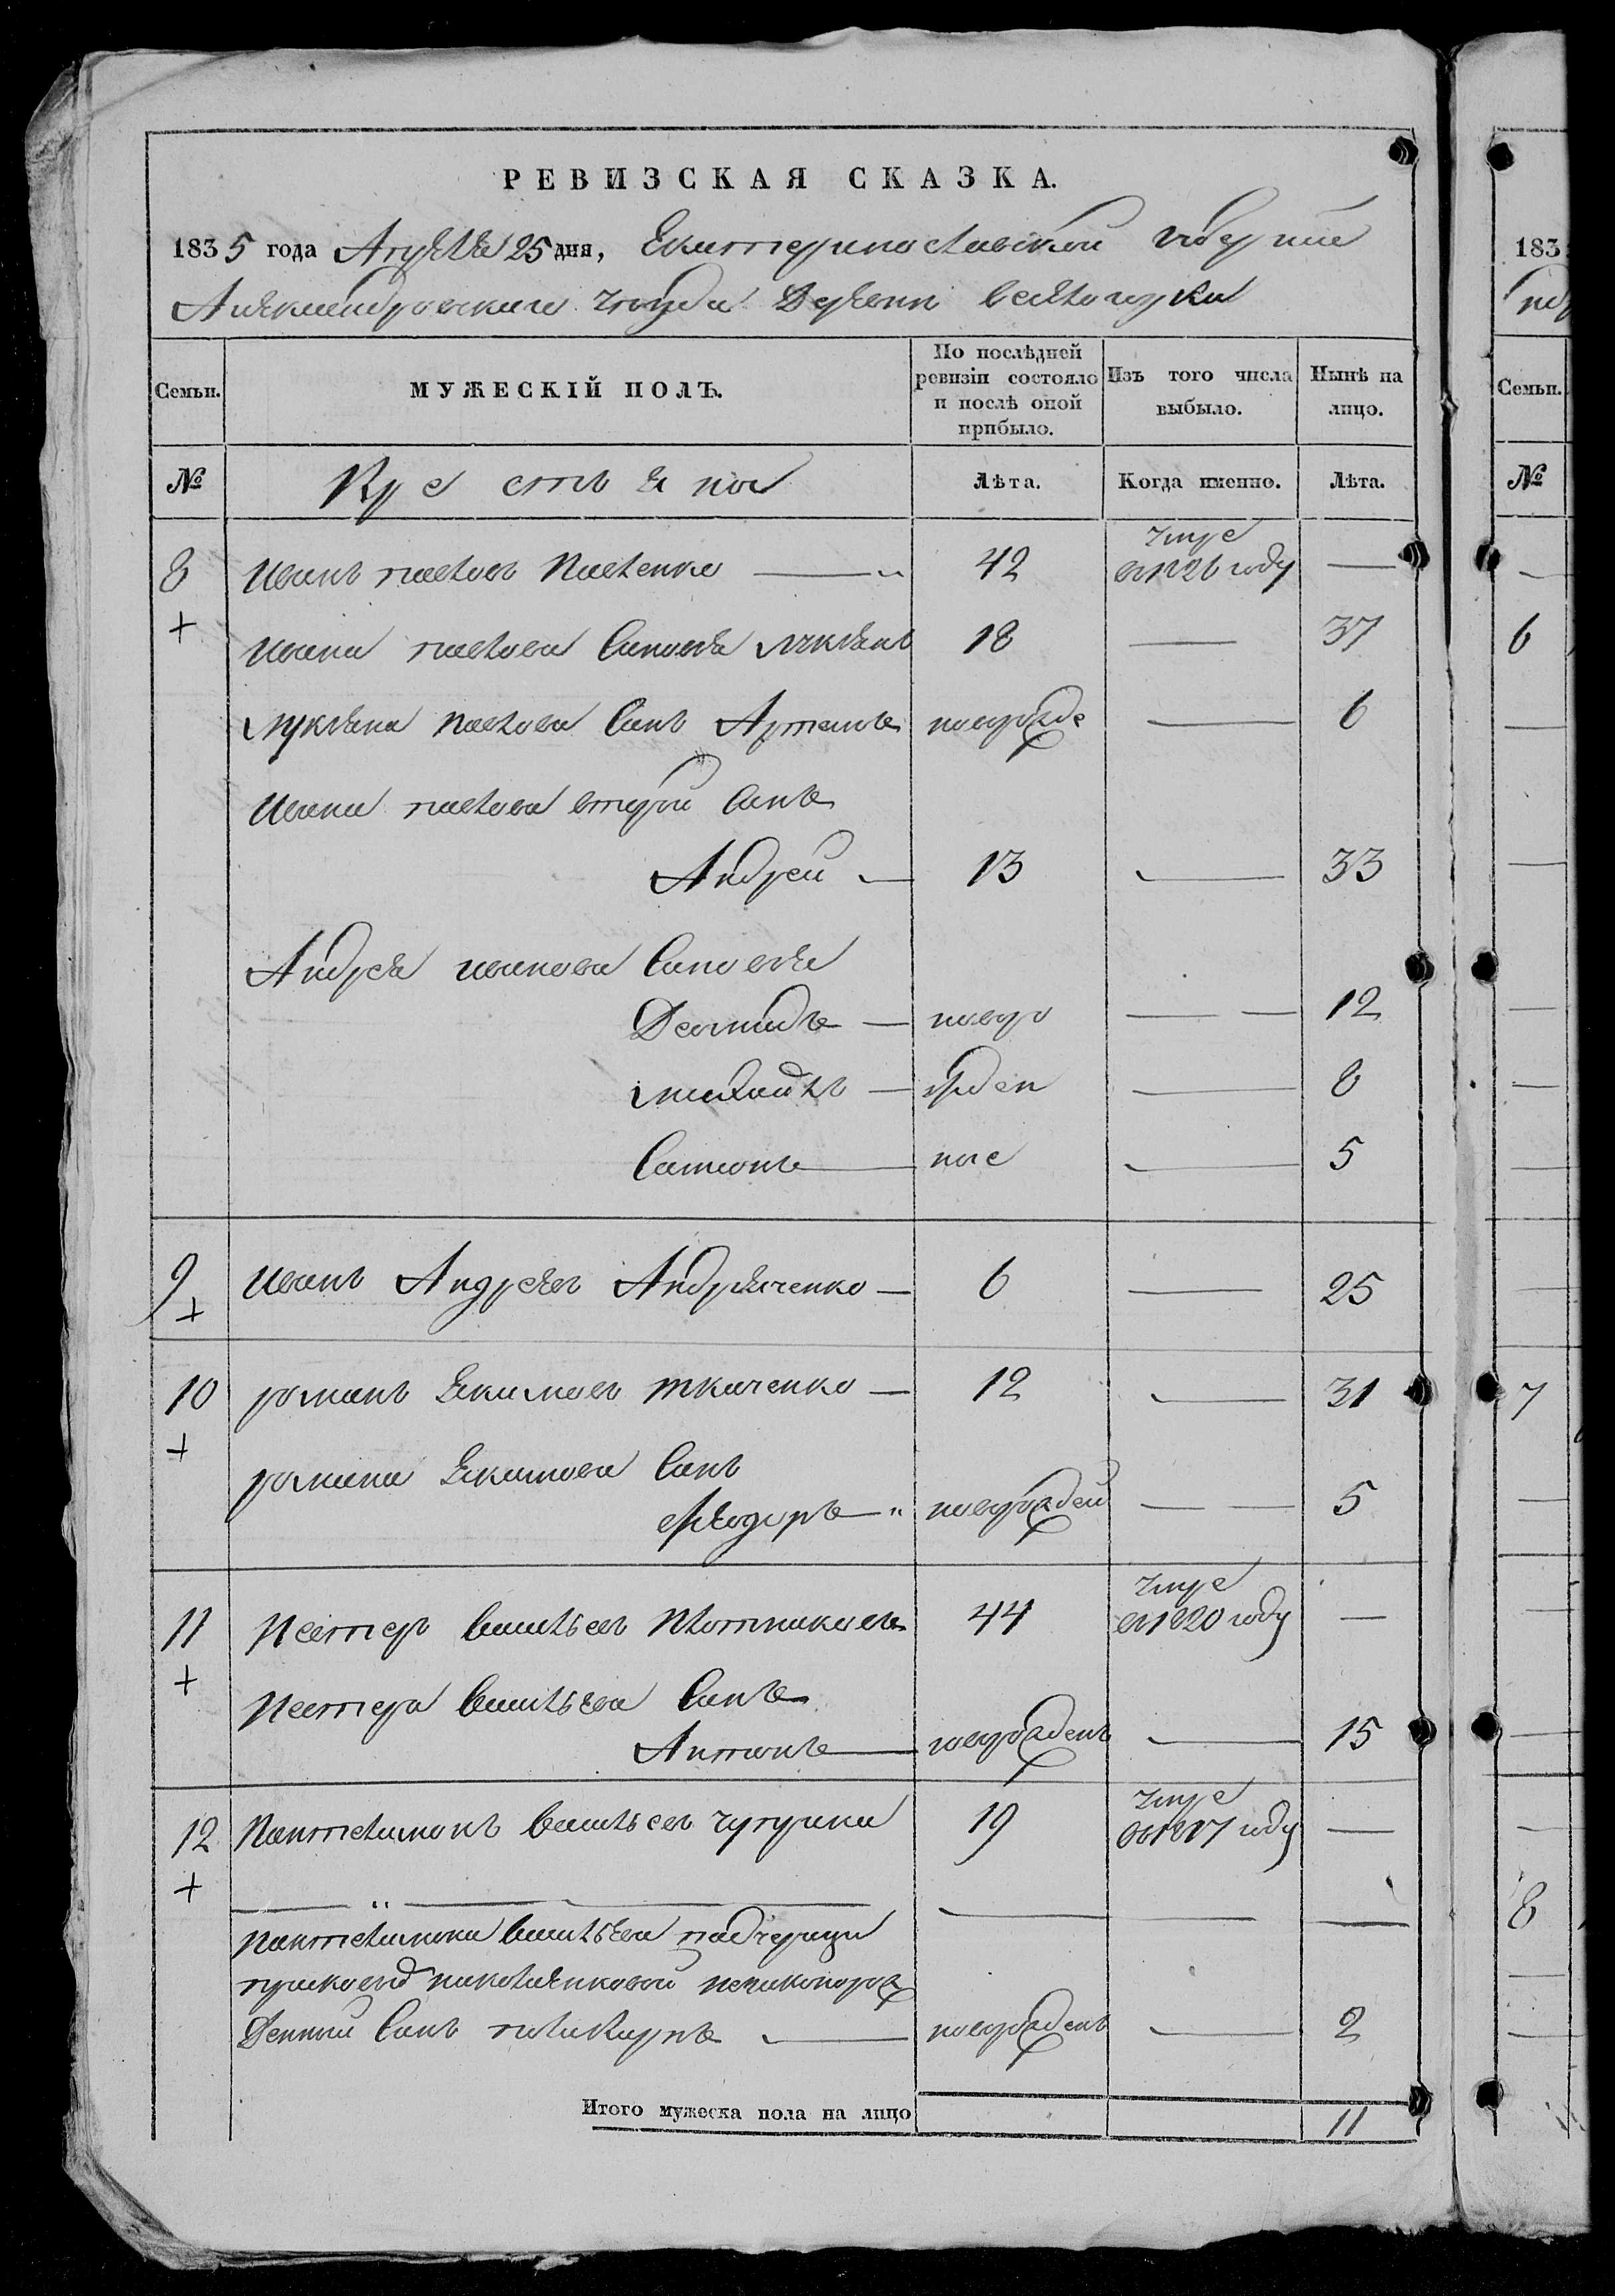 РЕВИЗСКАЯ СКАЗКА.
1835 года Апреля 25 дня, Екатеринославской губернии
Александровского уезда Деревни
Семьи. МУЖЕСКІЙ ПОЛЪ. По послѣдней ревизіи состояло и послѣ оной прибыло. Изъ того числа выбыло. Нынѣ на лицо.
№ Крестьяне Лѣта. Когда именно. Лѣта.
8 Иванъ Павловъ Павленко — 42 умре в 1826 году —
Ивана Павлова Сыновья Лукьянъ 18 — 37
Лукьяна Павлова Сынъ Артемъ новорожде — 6
Ивана Павлова второй Сынъ
Андрей — 13 — 33
Андрея Иванова Сыновья
— новоро — 12
Михаилъ — жден — 8
Самсонъ — ные — 5
9 Иванъ Андреевъ Андрѣяченко — 6 — 25
10 Романъ Якимовъ Ткаченко — 12 — 31
Романа Якимова Сынъ
Феодоръ — новорожден — 5
11 Нестеръ Васильевъ Плотниковъ 44 умре в 1820 году —
Нестера Васильева Сынъ
Антонъ — новорожденъ — 15
12 Пантелимонъ Васильевъ 19 умре в 1817 году —
Пантелимона Васильева падчерицы
незаконорож
Денный Сынъ Поликарпъ — новорожденъ — 2
Итого мужеска пола на лицо 11
183
Семьи.
№
6
7
8